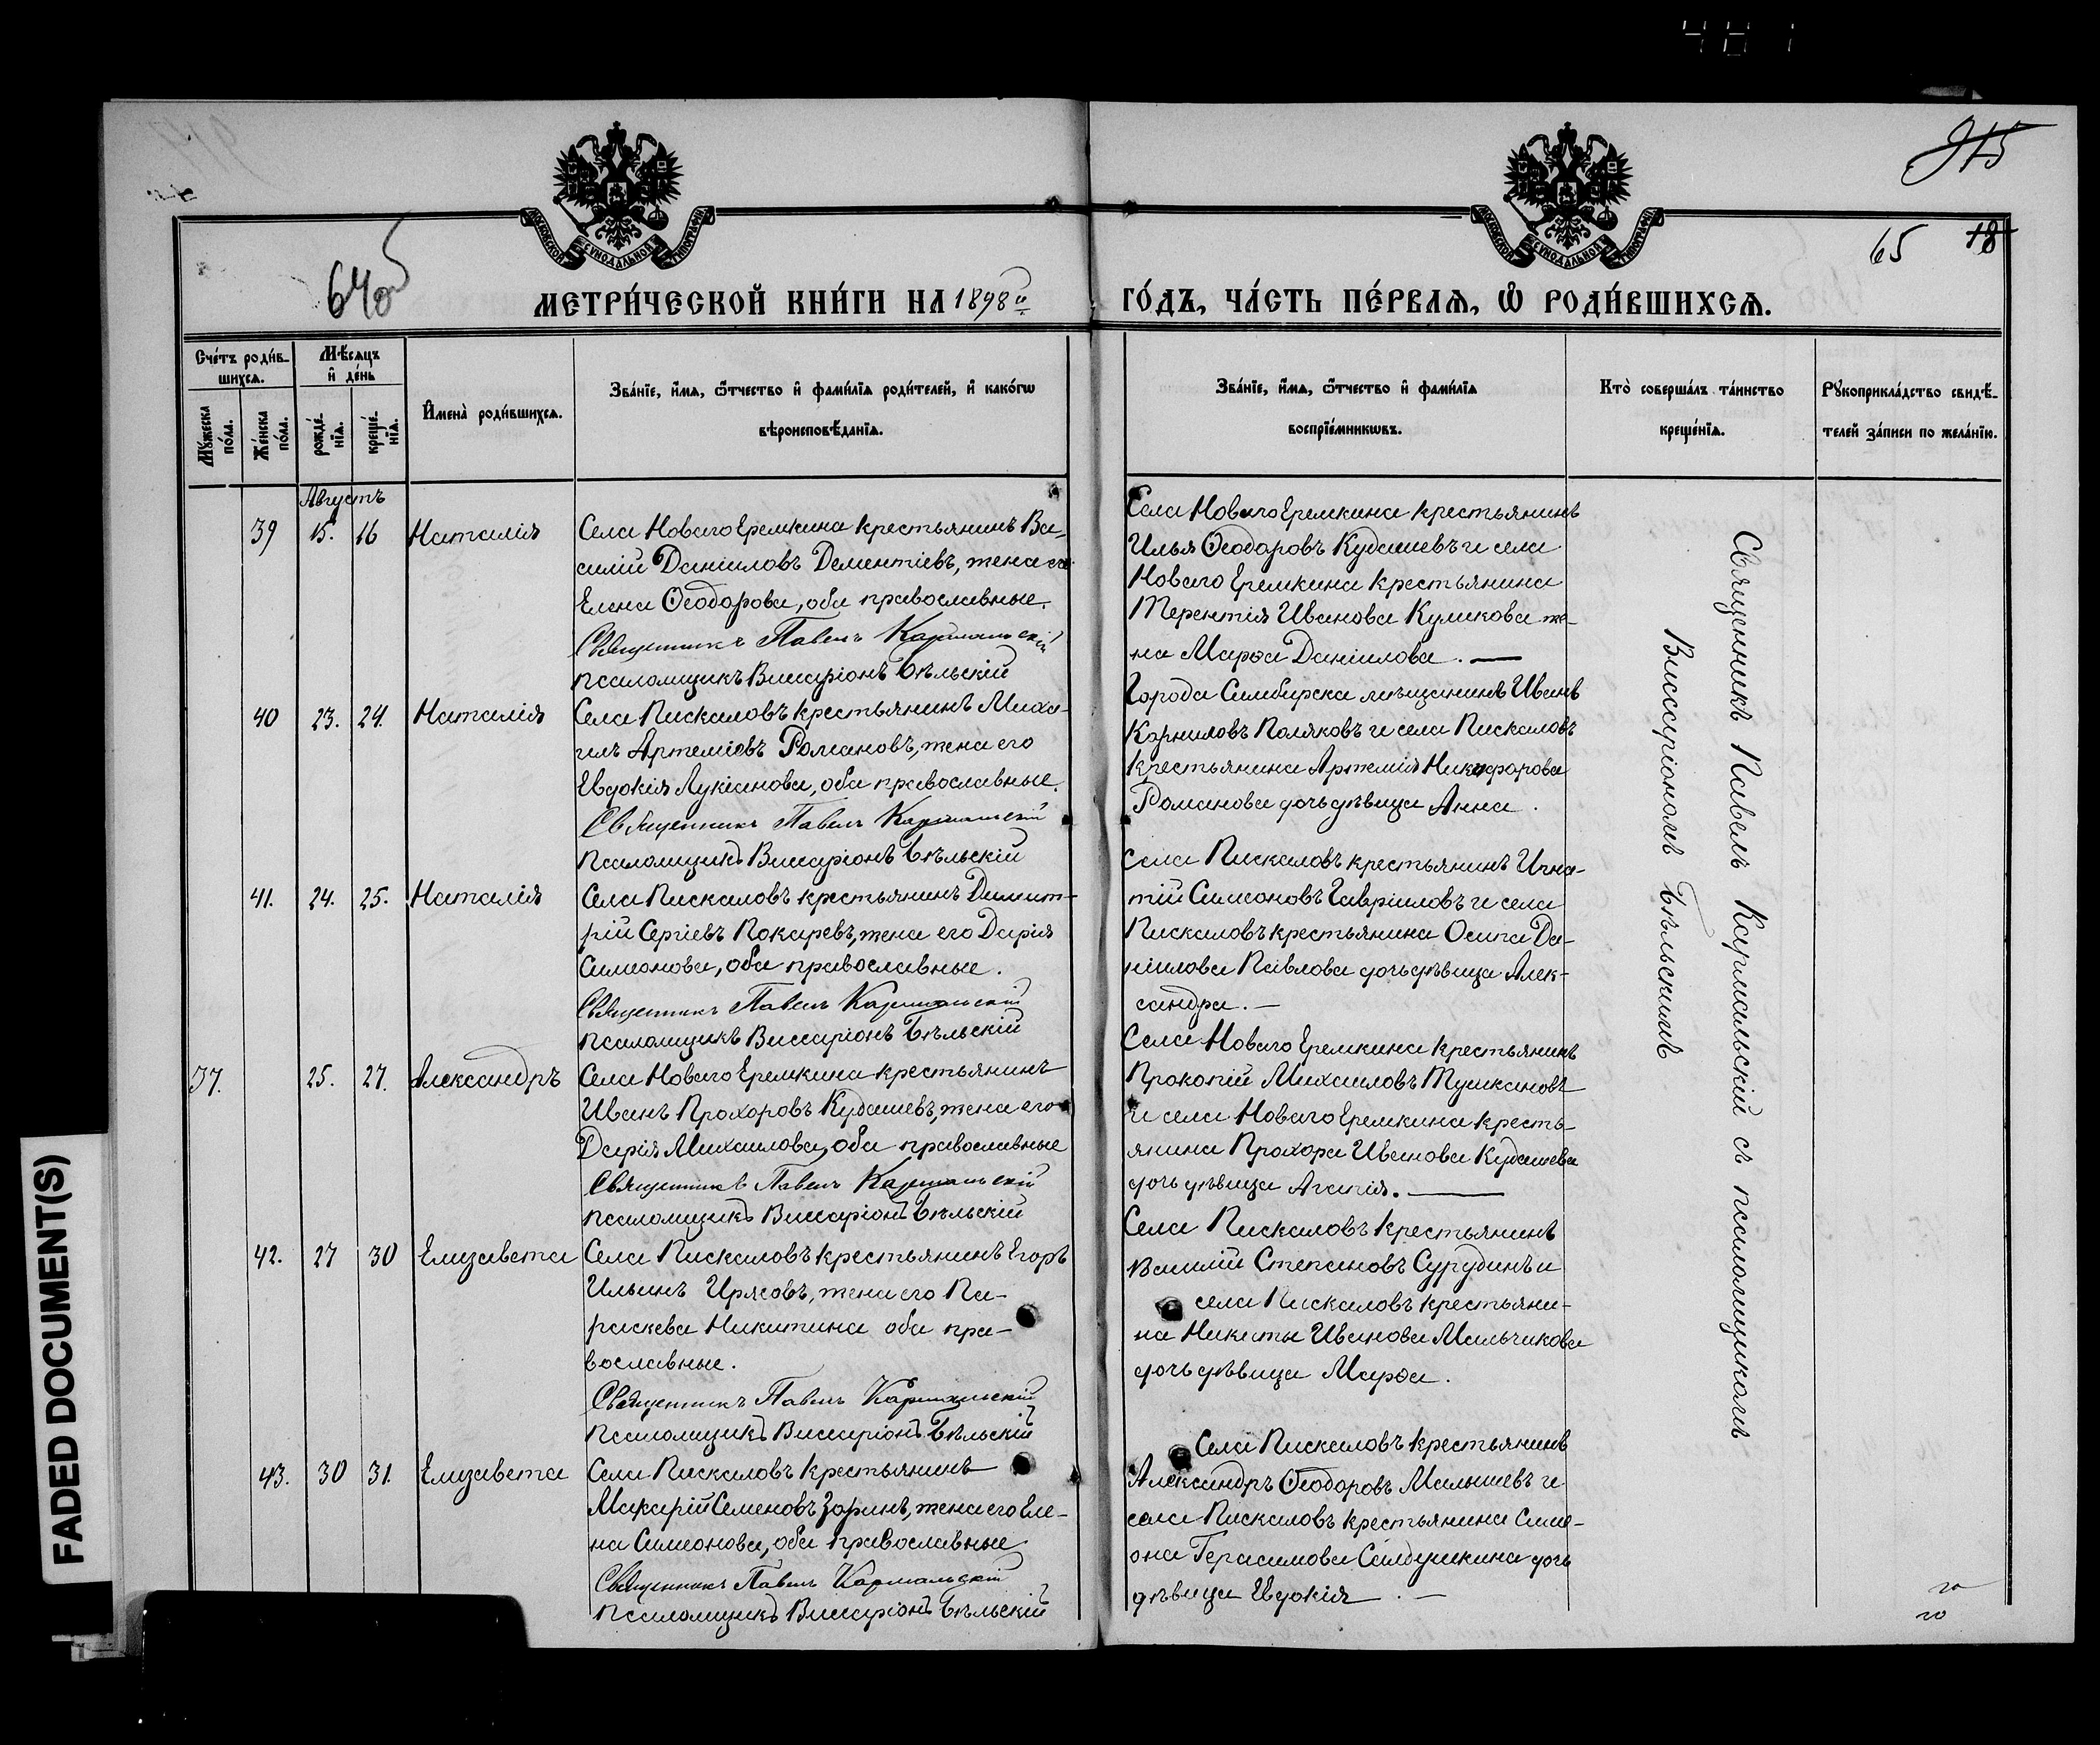 481
915
65 18
640
МОСКОВСКОЙ СѴНОДАЛЬНОЙ ТИПОГРАФІИ
МОСКОВСКОЙ СѴНОДАЛЬНОЙ ТИПОГРАФІИ
МЕТРИ́ЧЕСКОЙ КНИ́ГИ НА 1898й ГО́ДЪ, ЧА́СТЬ ПЕ́РВАѦ, Ѽ РОДИ́ВШИХСѦ.
Сче́тъ роди́в-
шихсѧ.
Мꙋ́жеска по́ла.
Же́нска по́ла.
Мѣ́сѧцъ
и҆ де́нь
рожде́-
нїѧ.
креще́-
нїѧ.
И҆мена̀ роди́вшихсѧ.
Зва́нїе, и҆́мѧ, ѻ҆́тчество и҆ фами́лїѧ роди́телей, и҆ како́гѡ
вѣроисповѣ́данїѧ.
Зва́нїе, и҆́мѧ, ѻ҆́тчество и҆ фами́лїѧ
воспрїе́мникѡвъ.
Кто̀ соверша́лъ та́инство
креще́нїѧ.
Рꙋкоприкла́дство свидѣ́-
телей за́писи по жела́нїю.
Августъ
39 15. 16 Наталія
Села Новаго Еремкина крестьянинъ Ва-
силій Данииловъ Дементіевъ, жена его
Елена Ѳеодорова, оба православные.
Священникъ Павелъ Кармальскій
псаломщикъ Виссаріонъ Бѣльскій
Села Новаго Еремкина крестьянинъ
Илья Ѳеодоровъ Кудашевъ и села
Новаго Еремкина крестьянина
Терентія Иванова Куликова же-
на Марѳа Даніилова. —
40 23. 24. Наталія
Села Пискаловъ крестьянинъ Миха-
илъ Артеміевъ Романовъ, жена его
Евдокія Лукіанова, оба православные.
Священникъ Павелъ Кармальскій
псаломщикъ Виссаріонъ Бѣльскій
Города Симбирска мѣщанинъ Иванъ
Корниловъ Поляковъ и села Пискаловъ
крестьянина Артемія Никифорова
Романова дочь дѣвица Анна.
41. 24. 25. Наталія
Села Пискаловъ крестьянинъ Димит-
рій Сергіевъ Покаревъ, жена его Дарія
Симонова, оба православные.
Священникъ Павелъ Кармальскій
псаломщикъ Виссаріонъ Бѣльскій
Села Пискаловъ крестьянинъ Игна-
тій Симоновъ Гавріиловъ и села
Пискаловъ крестьянина Осипа Да-
ніилова Павлова дочь дѣвица Алек-
сандра. —
37. 25. 27. Александръ
Села Новаго Еремкина крестьянинъ
Иванъ Прохоровъ Кудашевъ, жена его
Дарія Михаилова, оба православные
Священникъ Павелъ Кармальскій
псаломщикъ Виссаріонъ Бѣльскій
Села Новаго Еремкина крестьянинъ
Прокопій Михаиловъ Тушкановъ
и села Новаго Еремкина кресть-
янина Прохора Иванова Кудашева
дочь дѣвица Агапія. —
42. 27 30 Елизавета
Села Пискаловъ крестьянинъ Егоръ
Ильинъ Иряковъ, жена его Па-
раскева Никитина оба пра-
вославные.
Священникъ Павелъ Кармальскій
псаломщикъ Виссаріонъ Бѣльскій
Села Пискаловъ крестьянинъ
Василій Степановъ Сурудинъ и
села Пискаловъ крестьяни-
на Никиты Иванова Мальчикова
дочь дѣвица Марѳа.
43. 30 31. Елизавета
Села Пискаловъ крестьянинъ
Макарій Семеновъ Заринъ, жена его Еле-
на Симонова, оба православные
Священникъ Павелъ Кармальскій
псаломщикъ Виссаріонъ Бѣльскій
Села Пискаловъ крестьянинъ
Александръ Ѳеодоровъ Малышевъ и
села Пискаловъ крестьянина Симе-
она Герасимова Салдушкина дочь
дѣвица Евдокія. —
Священникъ Павелъ Кармальскій съ псаломщикомъ
Виссаріономъ Бѣльскимъ
FADED DOCUMENT(S)